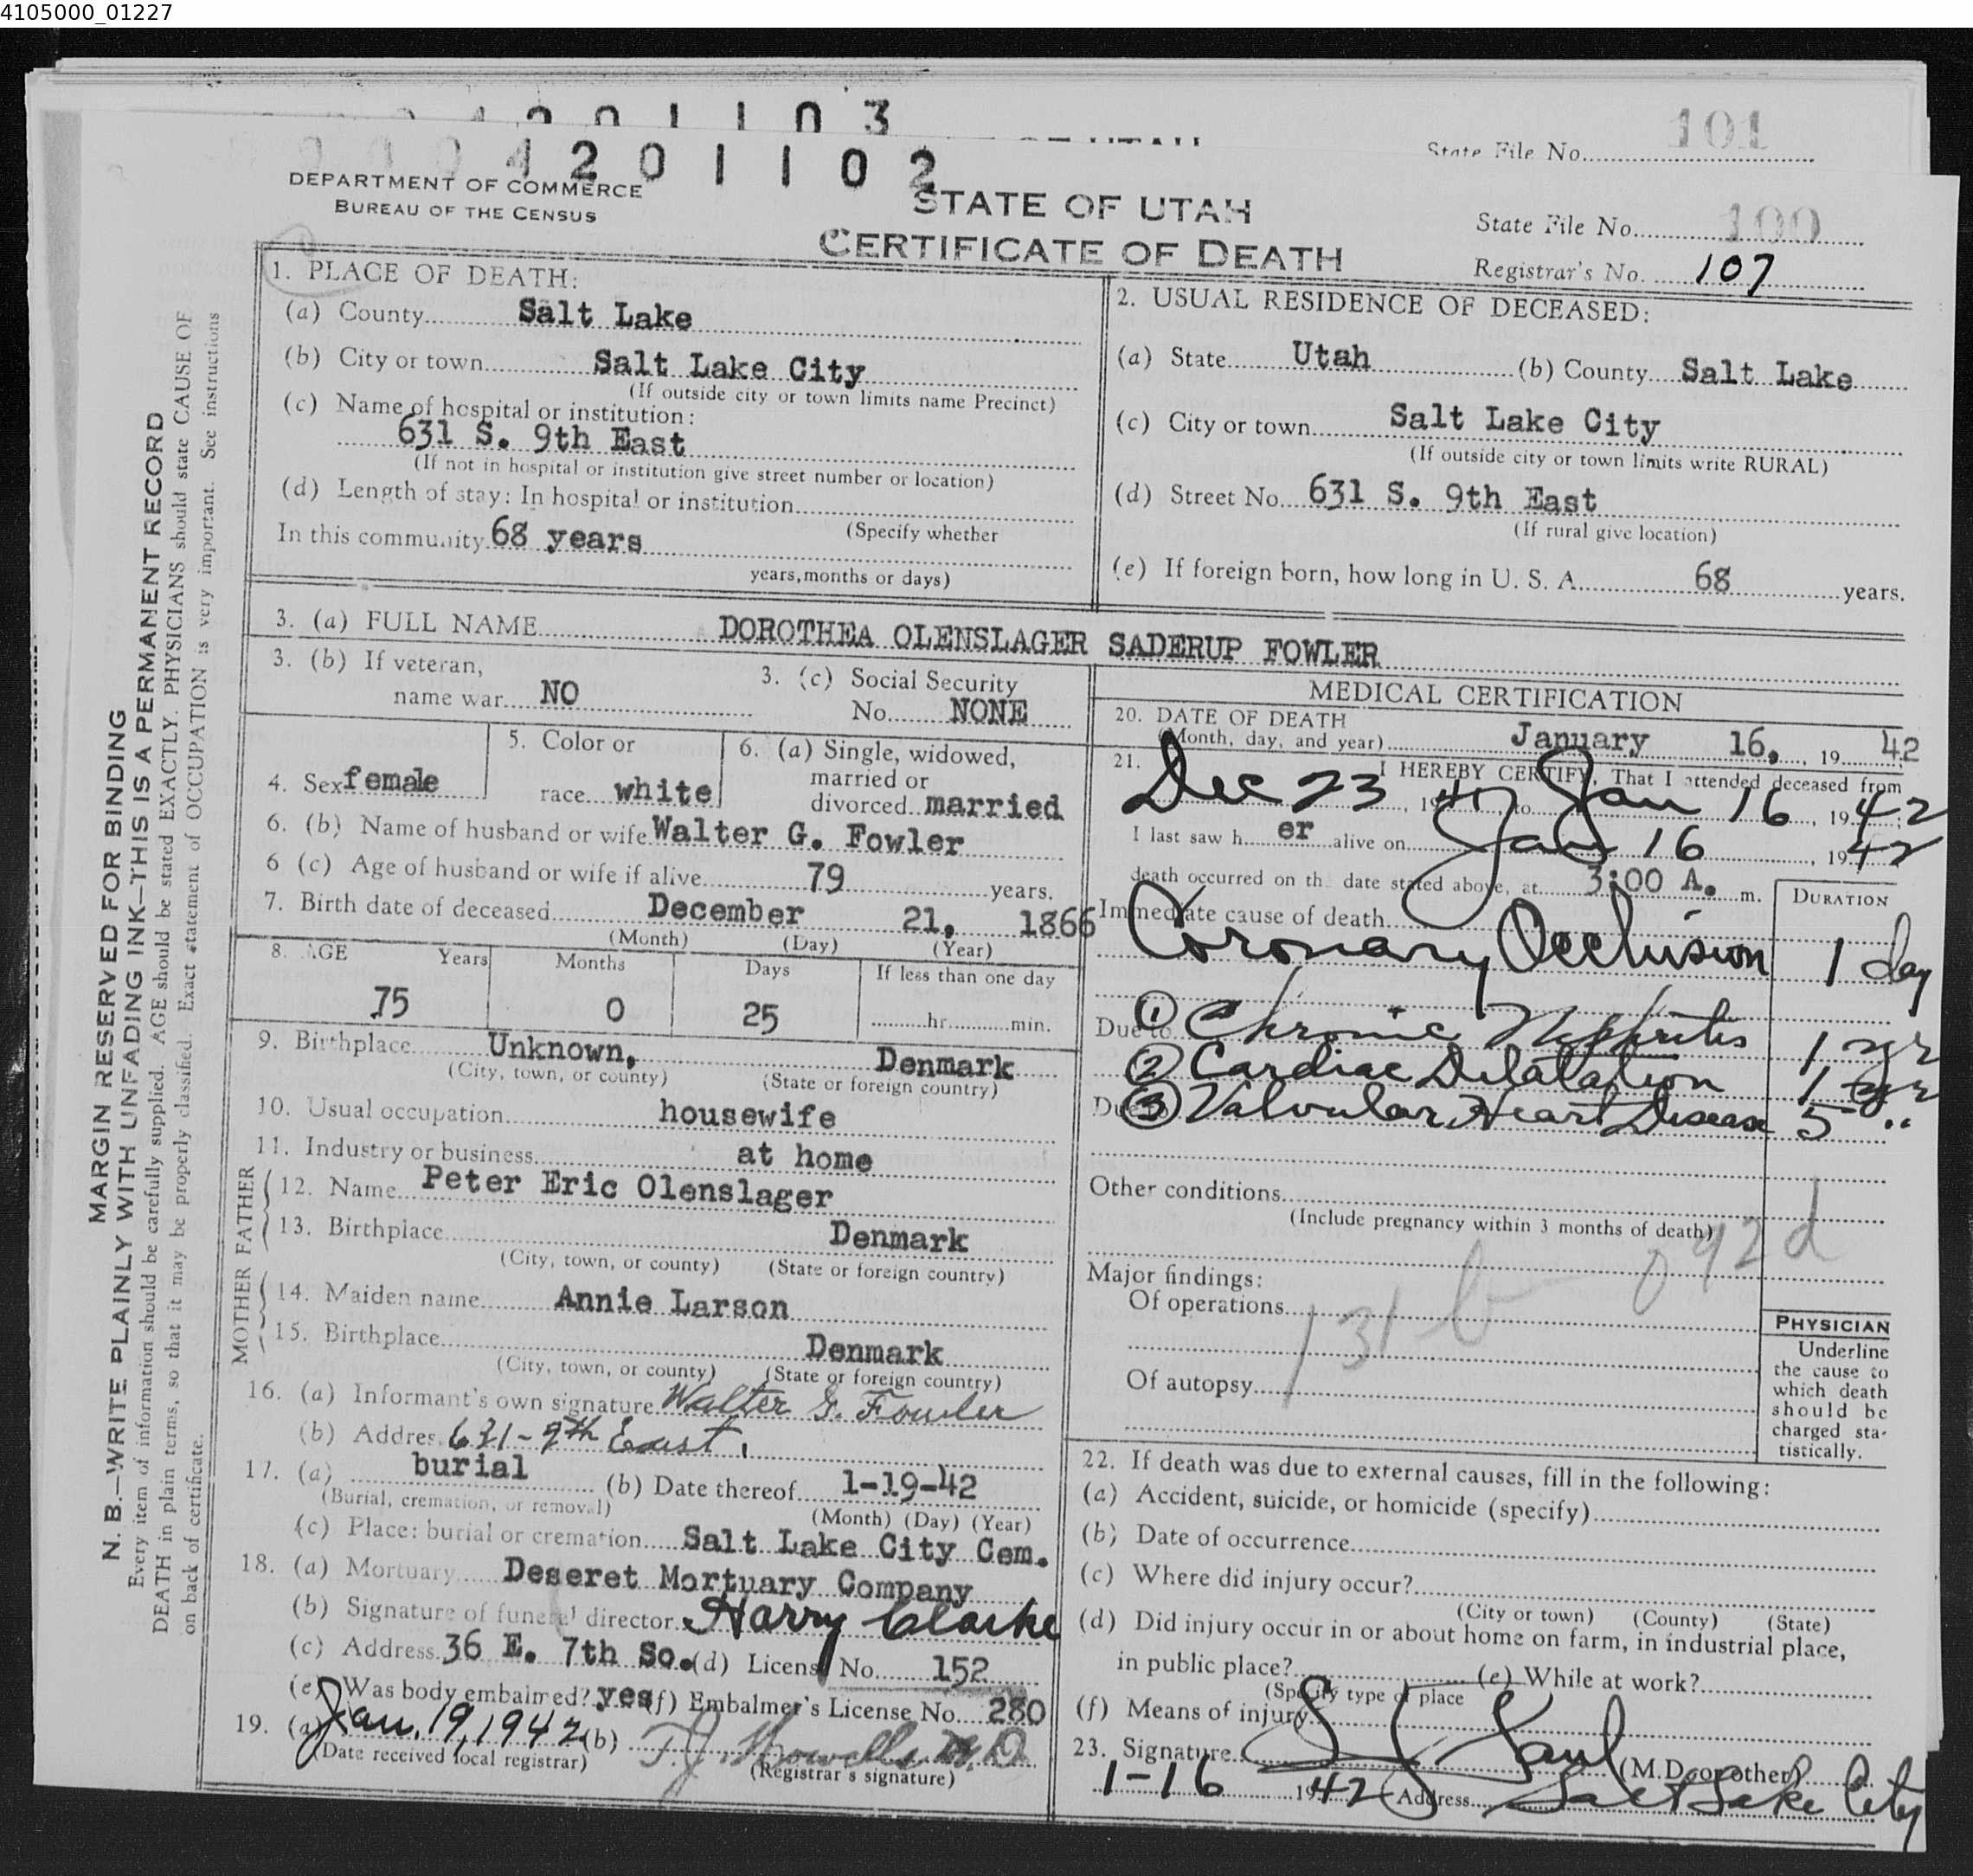 4105000_01227
4201103
State File No. 101
0004201102
DEPARTMENT OF COMMERCE
BUREAU OF THE CENSUS
STATE OF UTAH
CERTIFICATE OF DEATH
State File No. 100
Registrar's No. 107
MARGIN RESERVED FOR BINDING
N. B.—WRITE PLAINLY WITH UNFADING INK—THIS IS A PERMANENT RECORD
Every item of information should be carefully supplied. AGE should be stated EXACTLY. PHYSICIANS should state CAUSE OF
DEATH in plain terms, so that it may be properly classified. Exact statement of OCCUPATION is very important. See instructions
on back of certificate.
1. PLACE OF DEATH:
(a) County Salt Lake
(b) City or town Salt Lake City
(If outside city or town limits name Precinct)
(c) Name of hospital or institution:
631 S. 9th East
(If not in hospital or institution give street number or location)
(d) Length of stay: In hospital or institution
(Specify whether
In this community 68 years
years, months or days)
2. USUAL RESIDENCE OF DECEASED:
(a) State Utah (b) County Salt Lake
(c) City or town Salt Lake City
(If outside city or town limits write RURAL)
(d) Street No. 631 S. 9th East
(If rural give location)
(e) If foreign born, how long in U. S. A. 68 years.
3. (a) FULL NAME DOROTHEA OLENSLAGER SADERUP FOWLER
3. (b) If veteran,
name war NO
3. (c) Social Security
No. NONE
4. Sex female
5. Color or
race white
6. (a) Single, widowed,
married or
divorced married
6. (b) Name of husband or wife Walter G. Fowler
6 (c) Age of husband or wife if alive 79 years.
7. Birth date of deceased December 21, 1866
(Month) (Day) (Year)
8. AGE Years Months Days If less than one day
75 0 25 hr. min.
9. Birthplace Unknown, Denmark
(City, town, or county) (State or foreign country)
10. Usual occupation housewife
11. Industry or business at home
FATHER
12. Name Peter Eric Olenslager
13. Birthplace Denmark
(City, town, or county) (State or foreign country)
MOTHER
14. Maiden name Annie Larson
15. Birthplace Denmark
(City, town, or county) (State or foreign country)
16. (a) Informant's own signature Walter G. Fowler
(b) Addres. 631-9th East
17. (a) burial (b) Date thereof 1-19-42
(Burial, cremation, or removal) (Month) (Day) (Year)
(c) Place: burial or cremation Salt Lake City Cem.
18. (a) Mortuary Deseret Mortuary Company
(b) Signature of funeral director Harry Clarke
(c) Address 36 E. 7th So. (d) License No. 152
(e) Was body embalmed? yes (f) Embalmer's License No. 280
19. (a) Jan. 19, 1942 (b) T. J. Howells M.D
(Date received local registrar) (Registrar's signature)
MEDICAL CERTIFICATION
20. DATE OF DEATH
(Month, day, and year) January 16, 1942
21. I HEREBY CERTIFY, That I attended deceased from
Dec 23, 1941, to Jan 16, 1942
I last saw h er alive on Jan 16, 1942
death occurred on the date stated above, at 3:00 A. m.
DURATION
Immediate cause of death
Coronary Occlusion 1 day
Due to ① Chronic Nephritis 1 yr
② Cardiac Dilatation 1 yr
Due to ③ Valvular Heart Disease 5 "
Other conditions
(Include pregnancy within 3 months of death)
092d
Major findings:
Of operations
131b
Of autopsy
PHYSICIAN
Underline
the cause to
which death
should be
charged sta-
tistically.
22. If death was due to external causes, fill in the following:
(a) Accident, suicide, or homicide (specify)
(b) Date of occurrence
(c) Where did injury occur?
(City or town) (County) (State)
(d) Did injury occur in or about home on farm, in industrial place,
in public place? (e) While at work?
(Specify type of place
(f) Means of injury
23. Signature (M.D. or other)
1-16 1942 Address Salt Lake City